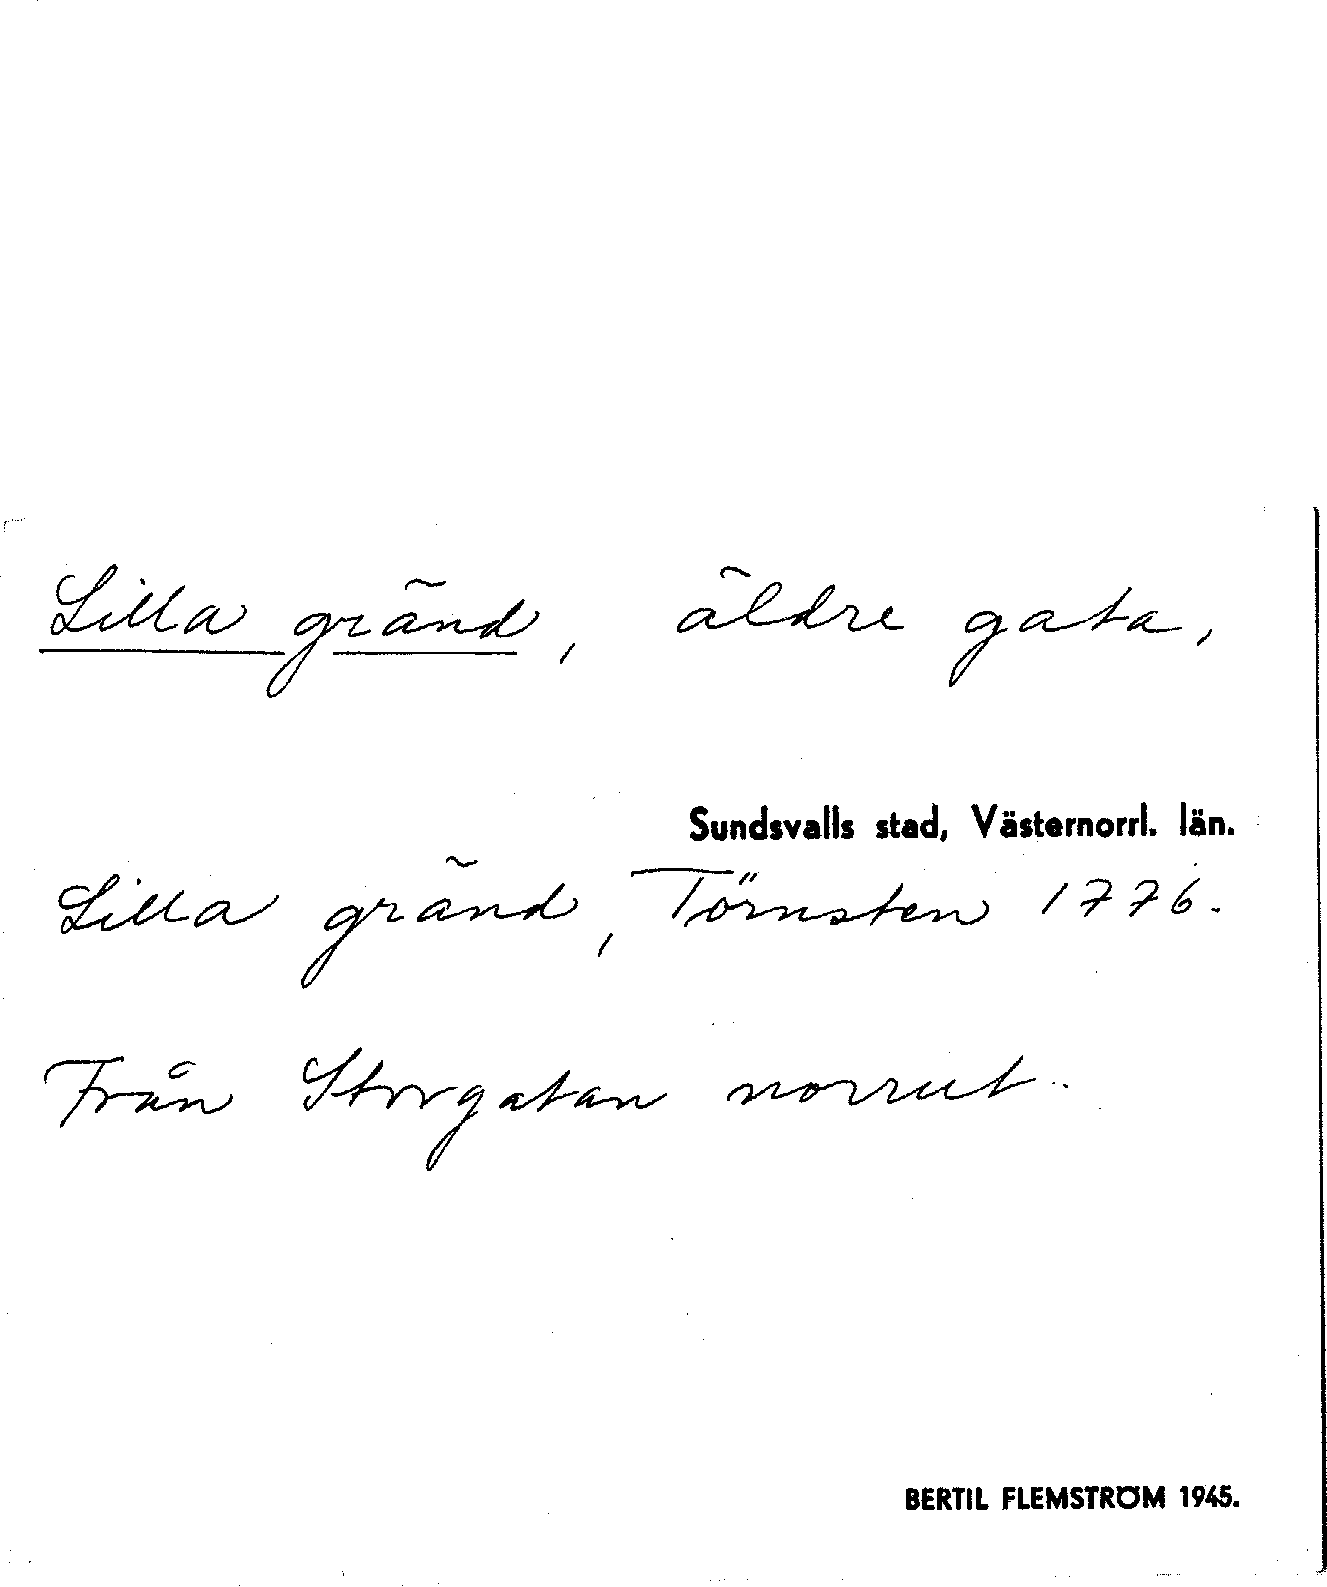 Lilla gränd, äldre gata,
Sundsvalls stad, Västernorrl. län.
Lilla gränd, Törnsten 1776.
Från Storgatan norrut.
BERTIL FLEMSTRÖM 1945.